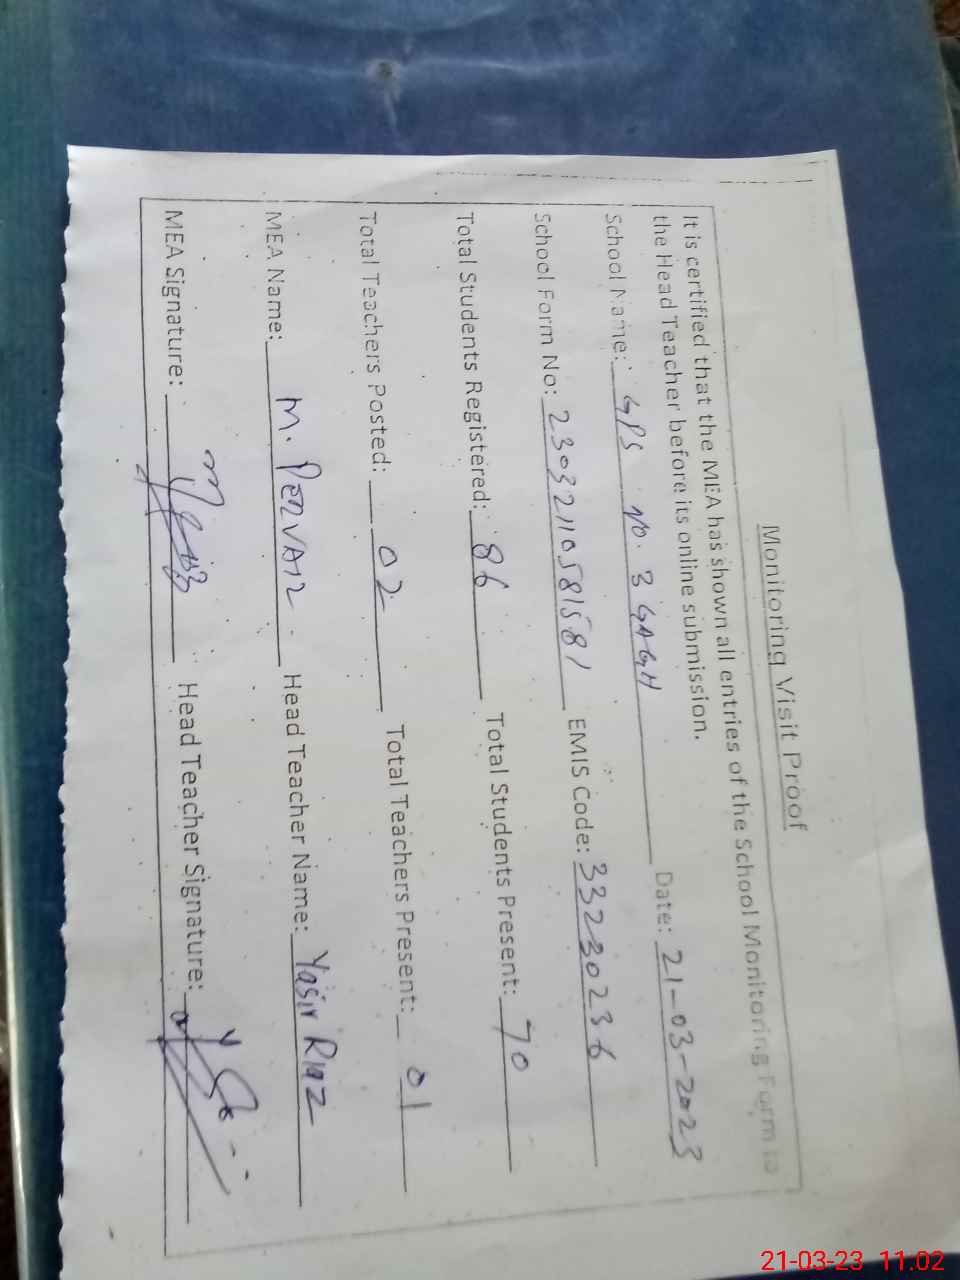 Monitoring Visit Proof
It is certified that the MEA has shown all entries of the School Monitoring Form to
the Head Teacher before its online submission.
School Name: GPS No. 3 GAGH Date: 21-03-2023
School Form No: 23032110581581 EMIS Code: 33230236
Total Students Registered: 86 Total Students Present: 70
Total Teachers Posted: 02 Total Teachers Present: 01
MEA Name: M. PERVAIZ Head Teacher Name: Yasir Riaz
MEA Signature: Head Teacher Signature:
21-03-23 11.02